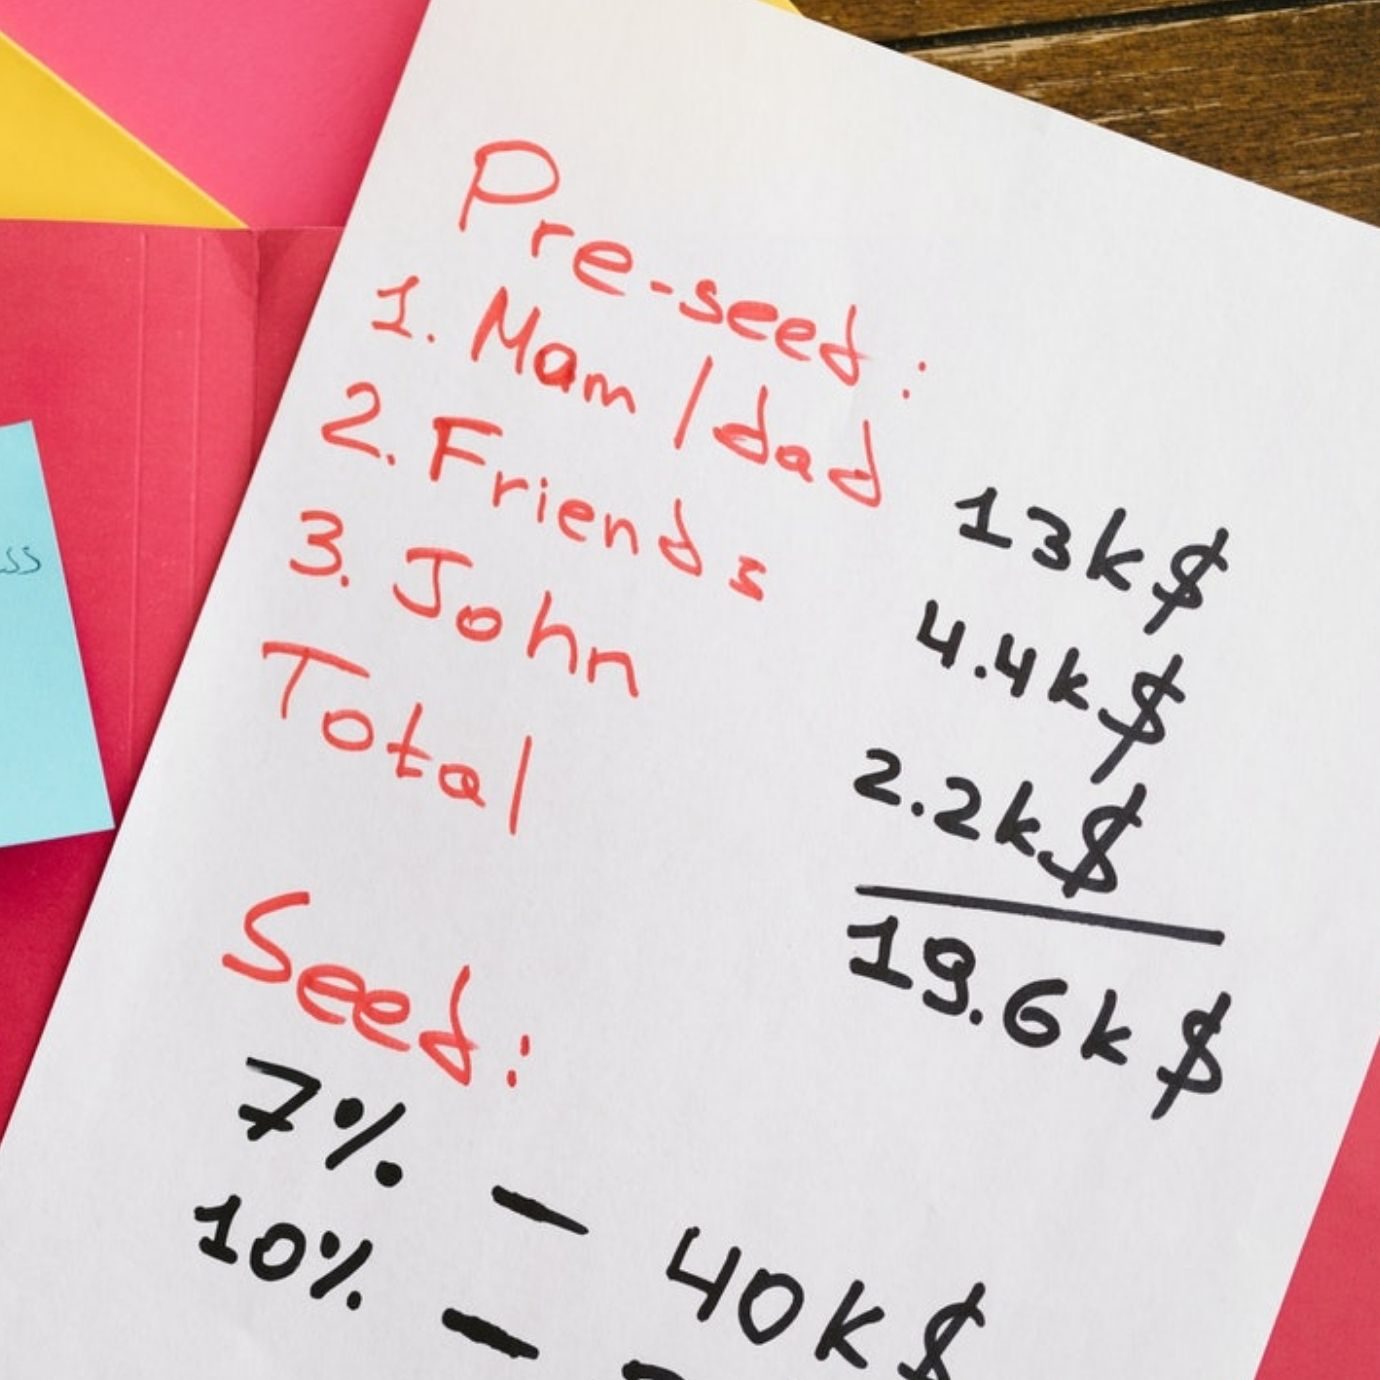 Pre-seed:
1. Mam/dad 13k$
2. Friends 4.4k$
3. John 2.2k$
Total 19.6k$
Seed:
7% - 40k$
10% -